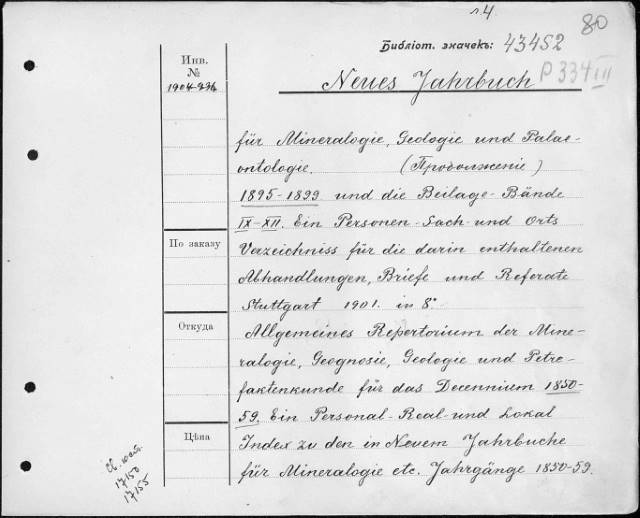 л4.
80
Библіот. значекъ: 43452
P 334 III
Инв.
№
1904
Neues Jahrbuch
für Mineralogie, Geologie und Palae-
ontologie. (Продолженіе)
1895-1899 und die Beilage-Bände
IX-XII. Ein Personen-Sach-und Orts
Verzeichniss für die darin enthaltenen
Abhandlungen, Briefe und Referate
Stuttgart 1901. in 8°
По заказу
Allgemeines Repertorium der Mine-
ralogie, Geognosie, Geologie und Petre-
faktenkunde für das Decennium 1850-
59. Ein Personal-Real-und Lokal
Index zu den in Neuem Jahrbuche
für Mineralogie etc. Jahrgänge 1850-59.
Откуда
Цѣна
17150
17155